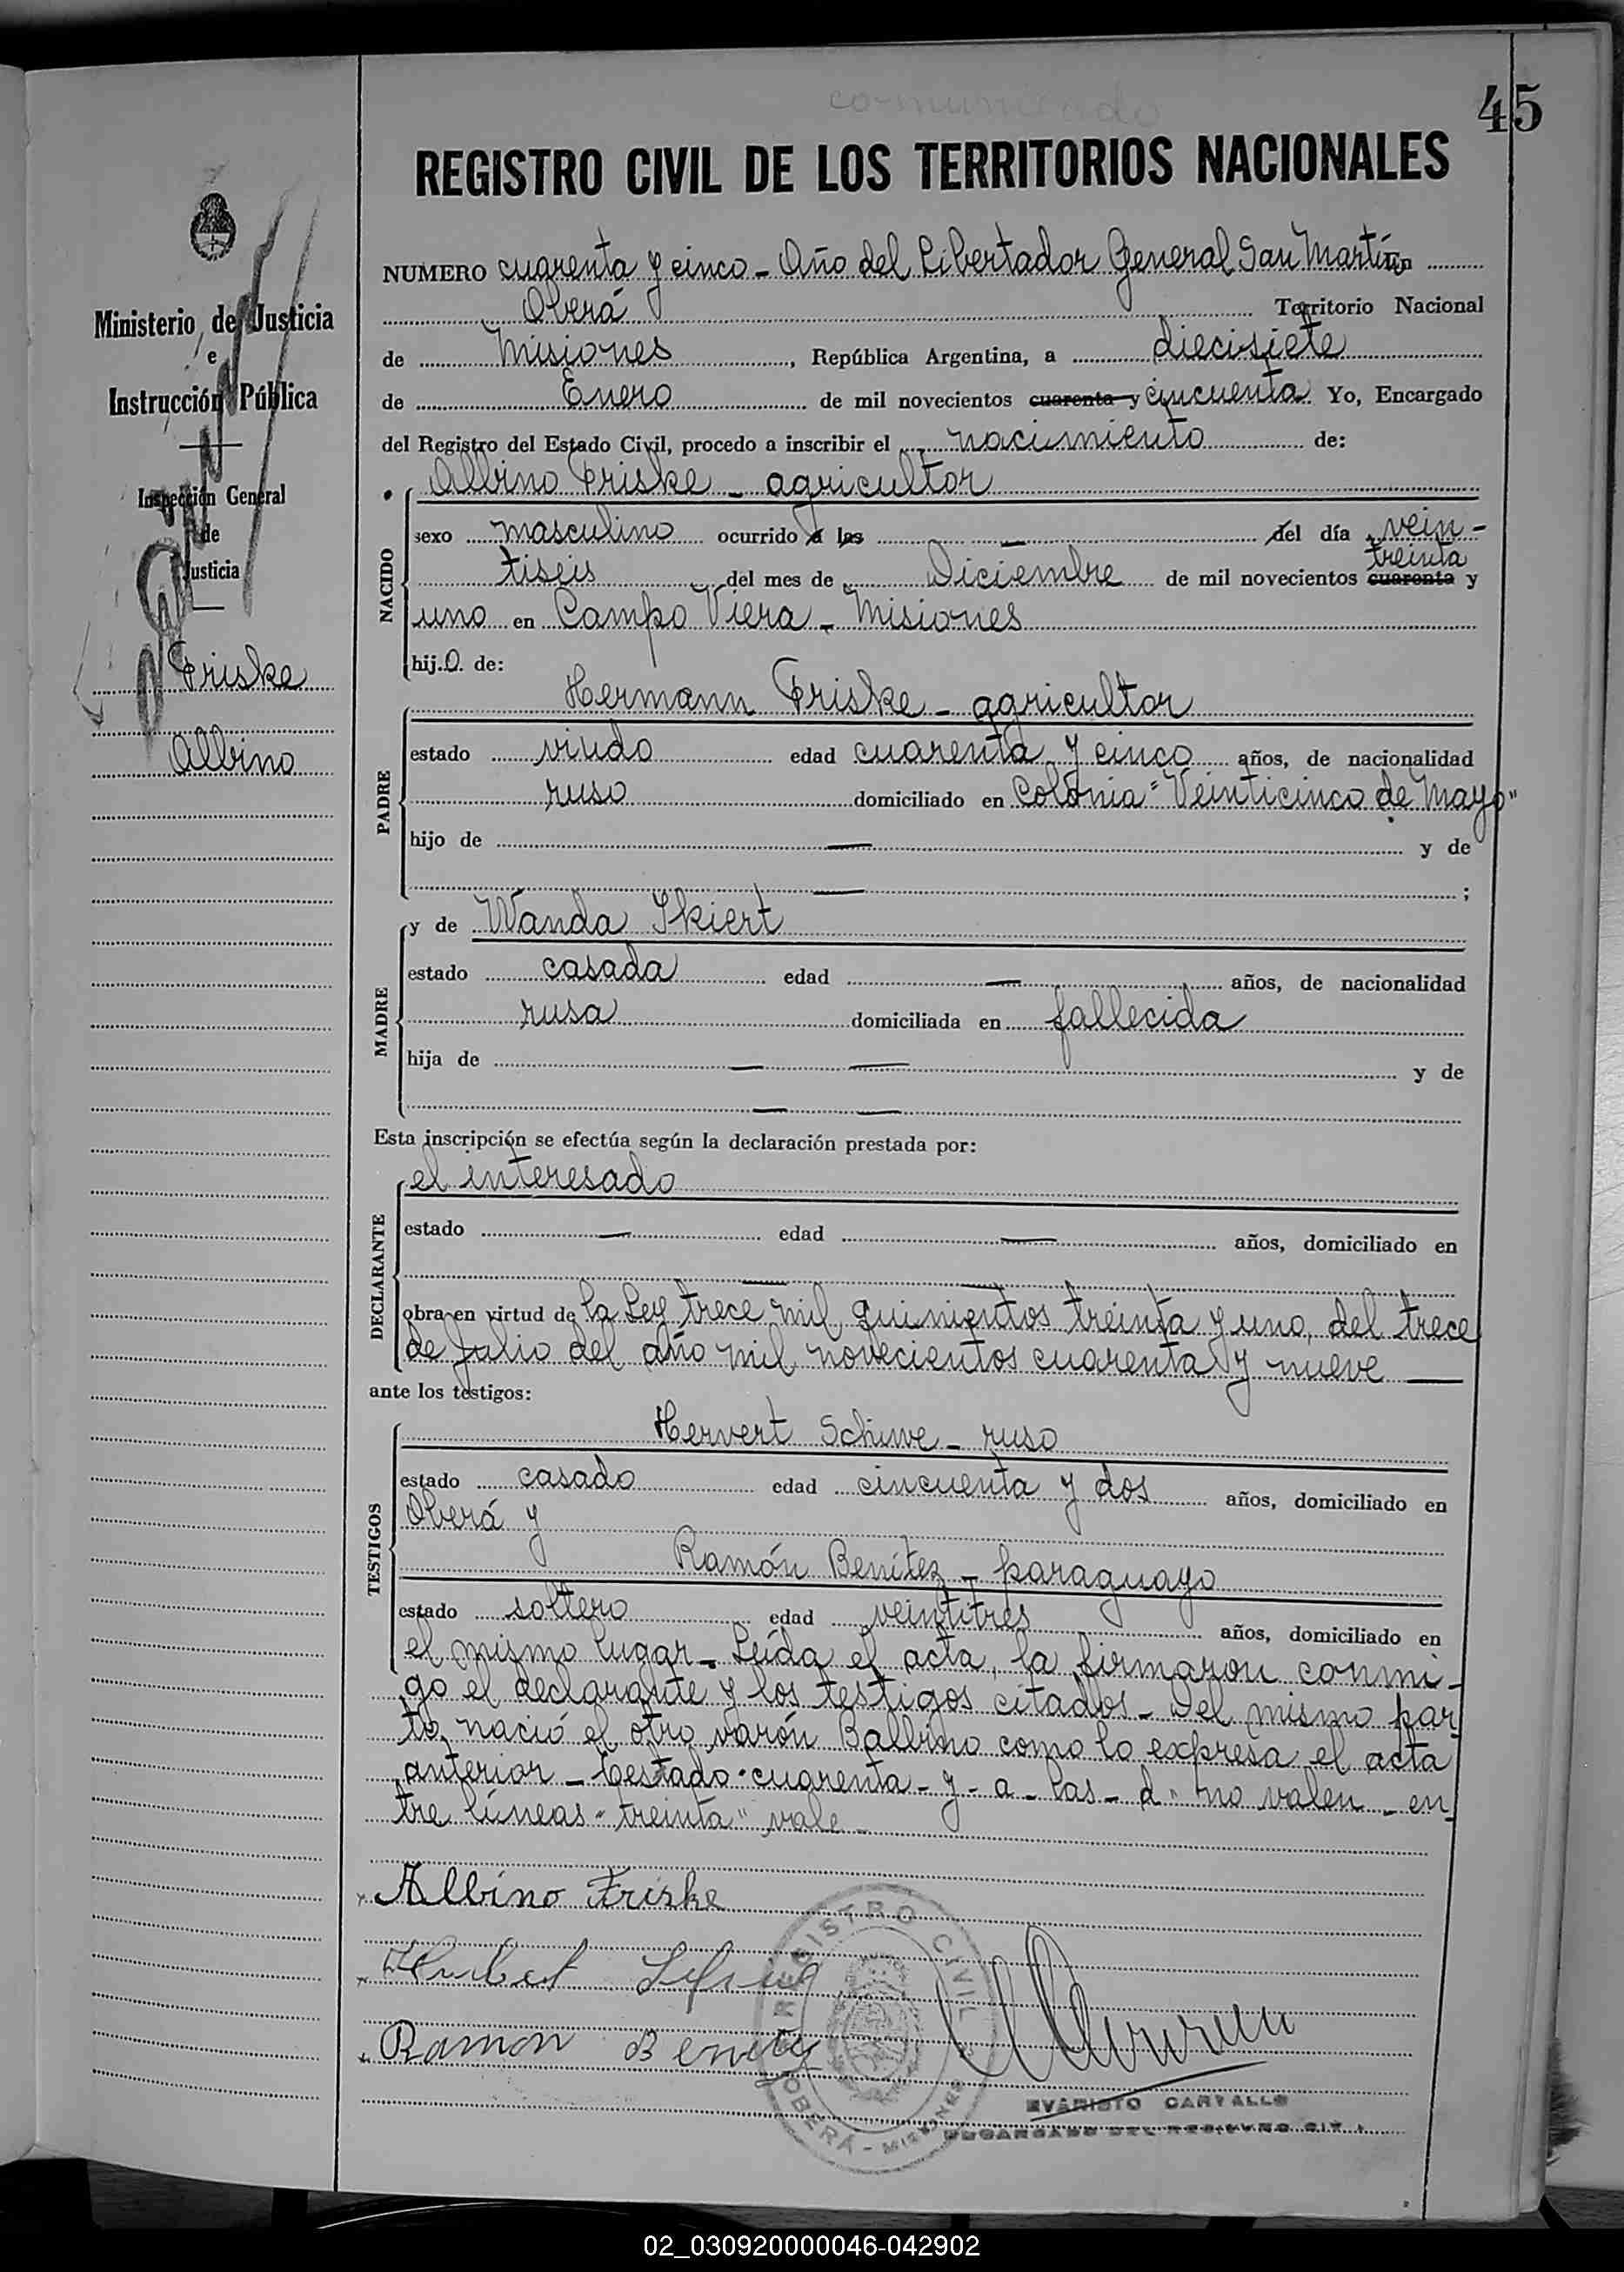 comunicado
45
REGISTRO CIVIL DE LOS TERRITORIOS NACIONALES
Ministerio de Justicia
e
Instrucción Pública
Inspección General
de
Justicia
Friske
Albino
NUMERO cuarenta y cinco - Año del Libertador General San Martín
Oberá Territorio Nacional
de Misiones, República Argentina, a diecisiete
de Enero de mil novecientos cuarenta y cincuenta Yo, Encargado
del Registro del Estado Civil, procedo a inscribir el nacimiento de:
NACIDO
Albino Friske - agricultor
sexo masculino ocurrido a las — del día vein-
treinta
tiseis del mes de Diciembre de mil novecientos cuarenta y
uno en Campo Viera - Misiones
hijo de:
PADRE
Hermann Friske - agricultor
estado viudo edad cuarenta y cinco años, de nacionalidad
ruso domiciliado en Colonia "Veinticinco de Mayo"
hijo de — y de
— ;
MADRE
y de Wanda Skiert
estado casada edad — años, de nacionalidad
rusa domiciliada en fallecida
hija de — — y de
— —
Esta inscripción se efectúa según la declaración prestada por:
DECLARANTE
el interesado
estado — edad — años, domiciliado en
— —
obra en virtud de la Ley trece mil quinientos treinta y uno, del trece
de Julio del año mil novecientos cuarenta y nueve —
ante los testigos:
TESTIGOS
Hervert Schiwe - ruso
estado casado edad cincuenta y dos años, domiciliado en
Oberá y
Ramón Benítez - paraguayo
estado soltero edad veintitres años, domiciliado en
el mismo lugar - Leída el acta, la firmaron conmi-
go el declarante y los testigos citados - Del mismo par-
to, nació el otro varón Balbino como lo expresa el acta
anterior - testado "cuarenta - y - a - las - d" no valen - en-
tre líneas "treinta" vale -
Albino Friske
Ramon Benitez
REGISTRO CIVIL
OBERÁ - MISIONES
EVARISTO CARVALLO
ENCARGADO DEL REGISTRO CIVIL
02_030920000046-042902